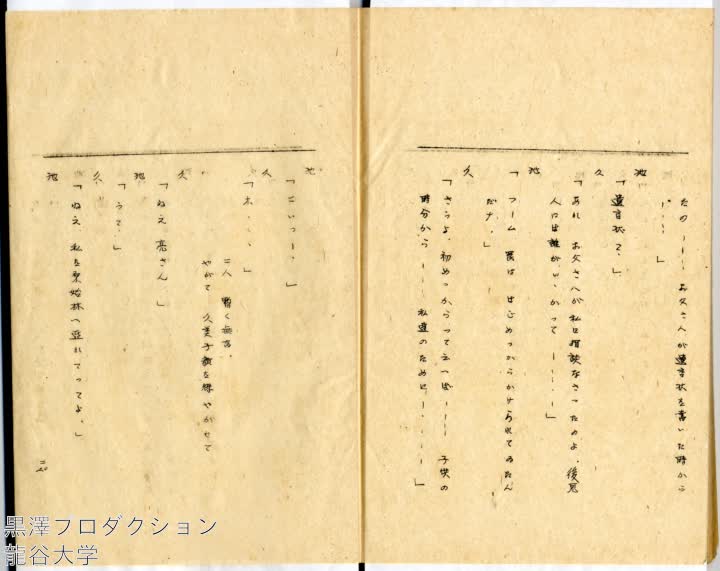 たの――― お父さんが遺言状を書いた時から
……」
池
「遺言状で、」
久
「あれ お父さんが私に相談なさったのよ、後見
人には誰がいゝかって ―――…」
池
「フーム 罠は はじめっからかけられてゐたん
だナ。」
久
「さうよ、初めっからって云へば――― 子供の
時分から ――― 私達のために―……」
池
「こいつー、」
久
「ホ…、」
二人 暫く無言。
やがて 久美子 顔を輝やかせて
久
「ねえ 亮さん、」
池
「うて、」
久
「ねえ 私を原始林へ連れてってよ、」
池
黒澤プロダクション
龍谷大学